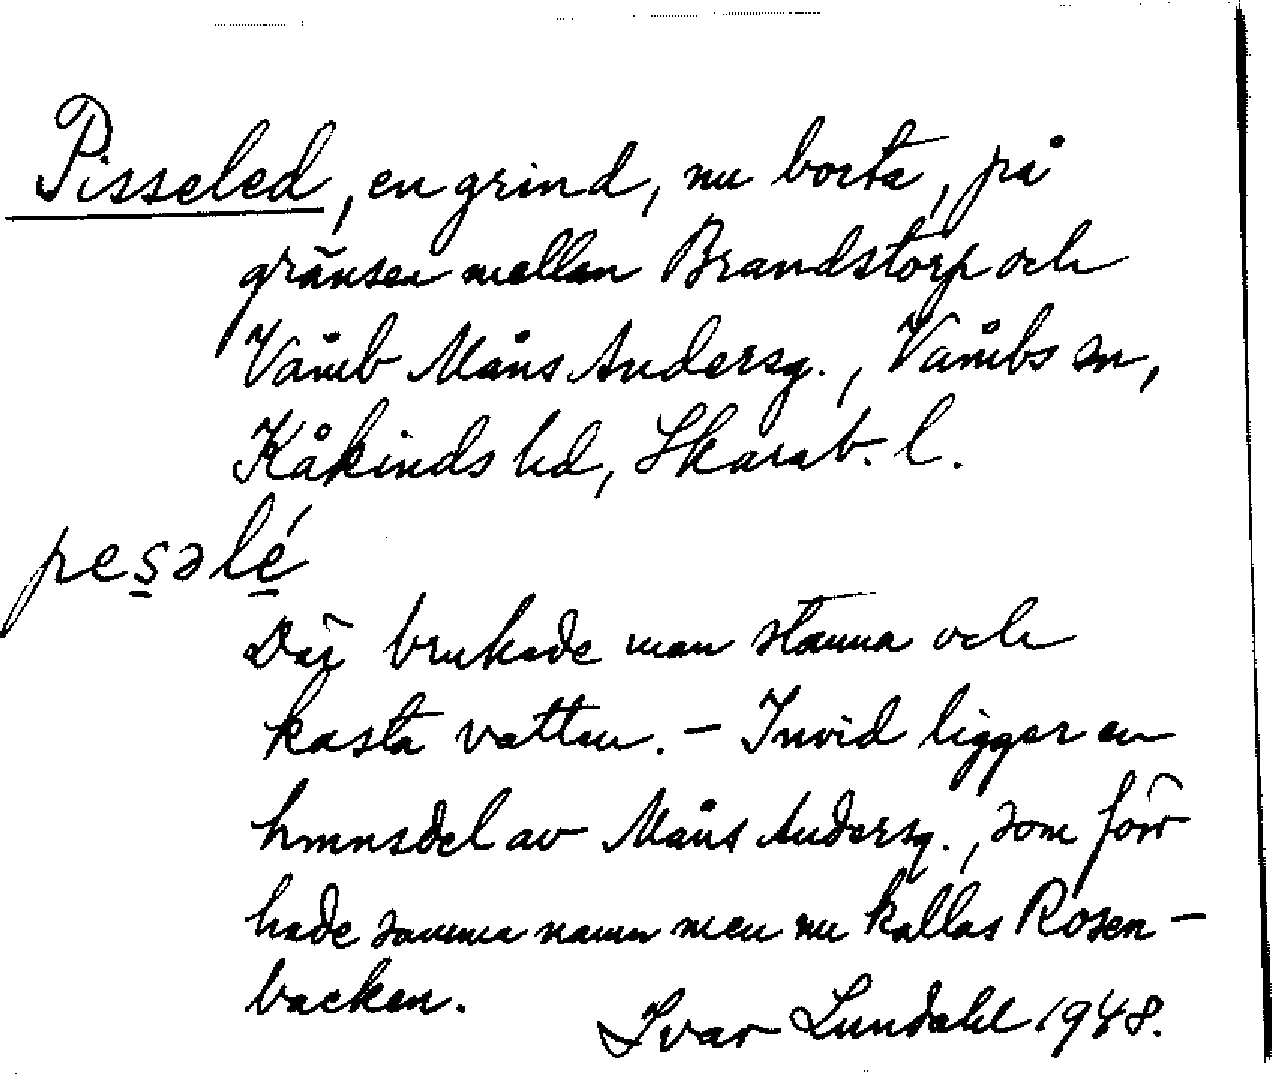 Pisseled, en grind, nu borta, på
gränsen mellan Brandstorp och
Våmb Måns Andersg., Våmbs sn,
Kåkinds hd, Skarab. l.
pes̲əlé̲
Där brukade man stanna och
kasta vatten. – Invid ligger en
hmnsdel av Måns Andersg., som förr
hade samma namn men nu kallas Rosen-
backen.
Ivar Lundahl 1948.